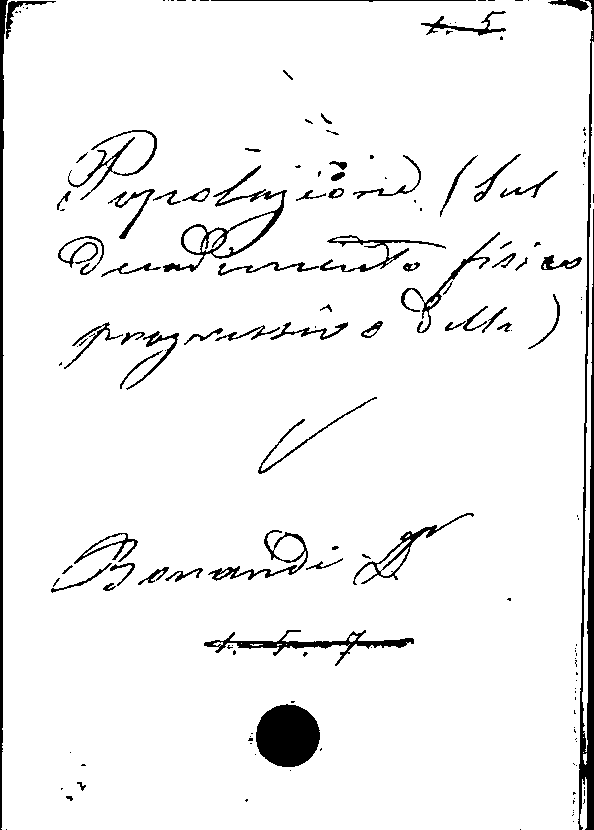 1. 5.
Popolazione (Sul
decadimento fisico
progressivo della)
Bonandi Dr
1. 5. 7